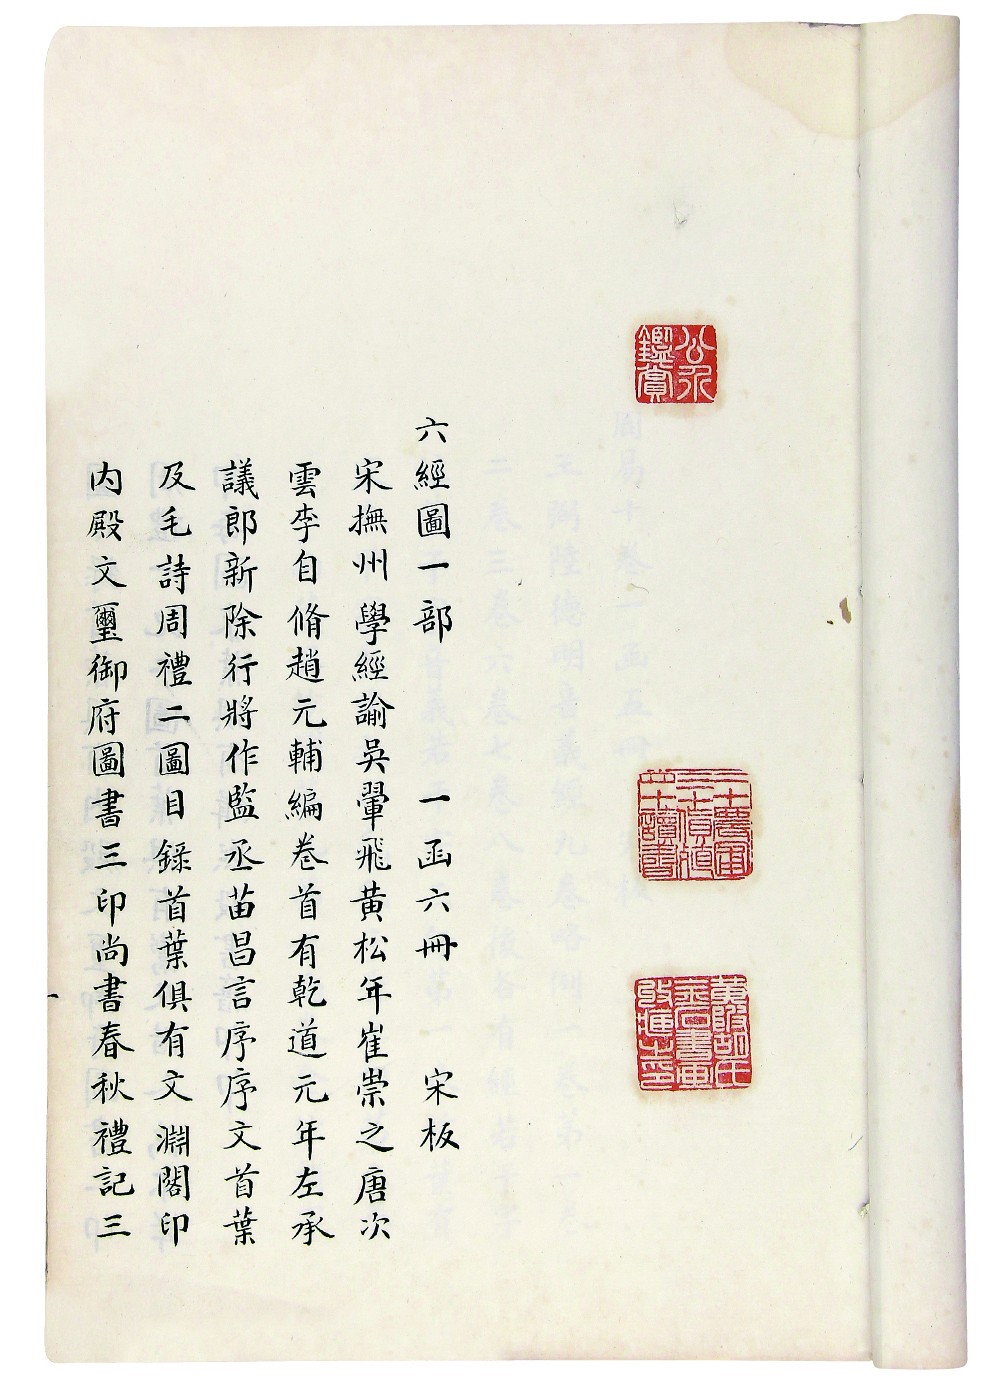 鑑賞
三十貨殖
四十讀書
黃陂胡氏
金石書畫
六經圖一部 一函六冊 宋板
宋撫州學經諭吳翬飛黃松年崔崇之唐次
雲李自脩趙元輔編卷首有乾道元年左承
議郎新除行將作監丞苗昌言序序文首葉
及毛詩周禮二圖目錄首葉俱有文淵閣印
内殿文璽御府圖書三印尚書春秋禮記三